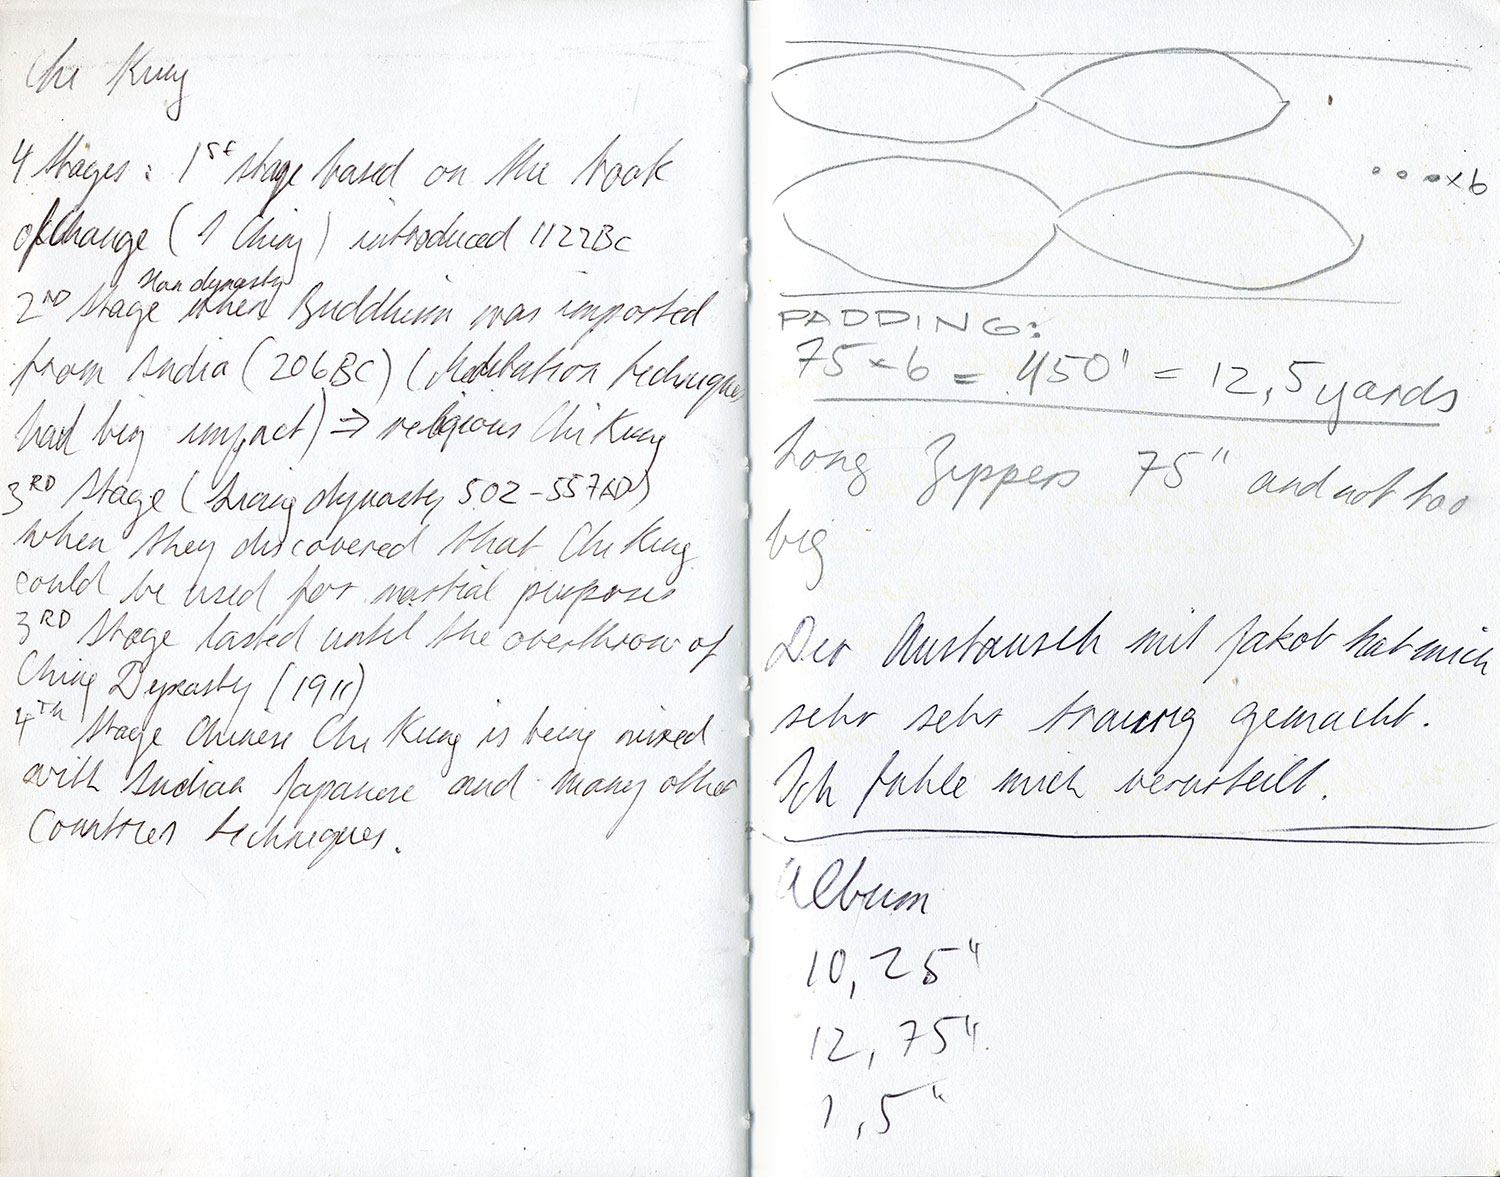 Chi Kung
4 Stages: 1st stage based on the book
of Change (I Ching) introduced 1122BC
Han dynasty
2ND Stage when Buddhism was imported
from India (206BC) (Meditation techniques
had big impact) => religious Chi Kung
3RD Stage (Liang dynasty 502-557AD)
when they discovered that Chi Kung
could be used for martial purposes
3RD Stage lasted until the overthrow of
Ching Dynasty (1911)
4TH Stage Chinese Chi Kung is being mixed
with Indian Japanese and many other
Countries techniques.
...x6
PADDING:
75x6 = 450" = 12,5 yards
Long Zippers 75" and not too
big
Der Austausch mit Jakob hat mich
sehr sehr traurig gemacht.
Ich fühle mich verurteilt.
Album
10,25"
12,75"
1,5"